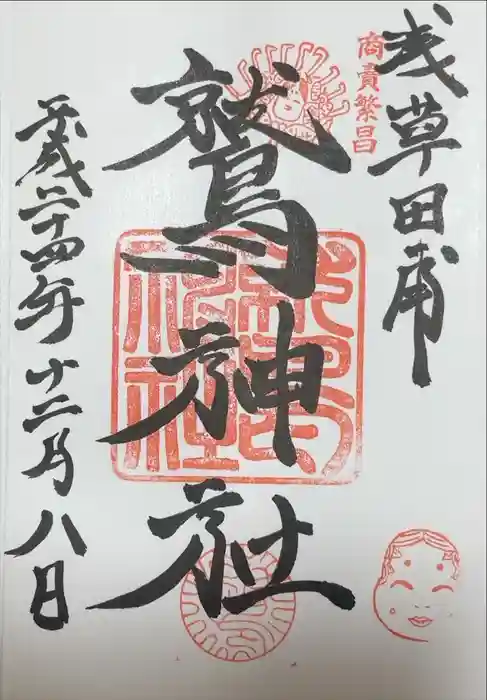 浅草田甫
商賣繁昌
鷲神社
平成二十四年十二月八日